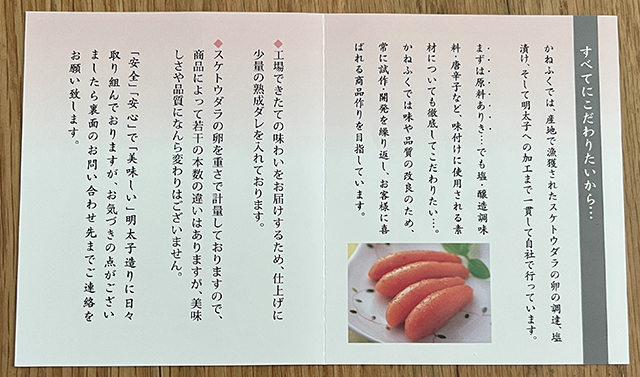 すべてにこだわりたいから…
かねふくでは、産地で漁獲されたスケトウダラの卵の調達、塩
漬け、そして明太子への加工まで一貫して自社で行っています。
まずは原料ありき…でも塩・醸造調味
料・唐辛子など、味付けに使用される素
材についても徹底してこだわりたい…。
かねふくでは味や品質の改良のため、
常に試作・開発を繰り返し、お客様に喜
ばれる商品作りを目指しています。
◆工場できたての味わいをお届けするため、仕上げに
少量の熟成ダレを入れております。
◆スケトウダラの卵を重さで計量しておりますので、
商品によって若干の本数の違いはありますが、美味
しさや品質になんら変わりはございません。
「安全」「安心」で「美味しい」明太子造りに日々
取り組んでおりますが、お気づきの点がござい
ましたら裏面のお問い合わせ先までご連絡を
お願い致します。